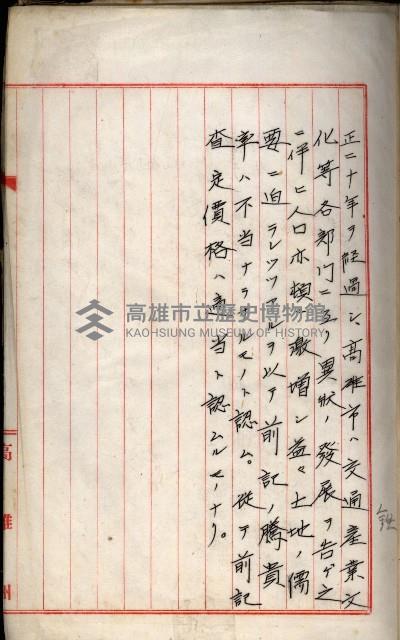 正ニ十年ヲ経過シ、高雄市ハ交通産業文
化等各部門ニ亘リ異状ノ発展ヲ告ゲ之
ニ伴ヒ人口亦頻ニ激増シ益々土地ノ需
要ニ迫ラレツツアルヲ以テ前記ノ騰貴
率ハ不当ナラザルモノト認ム。従テ前記
査定價格ハ適当ト認ムルモノナリ。
高雄州
高雄市立歷史博物館
KAOHSIUNG MUSEUM OF HISTORY